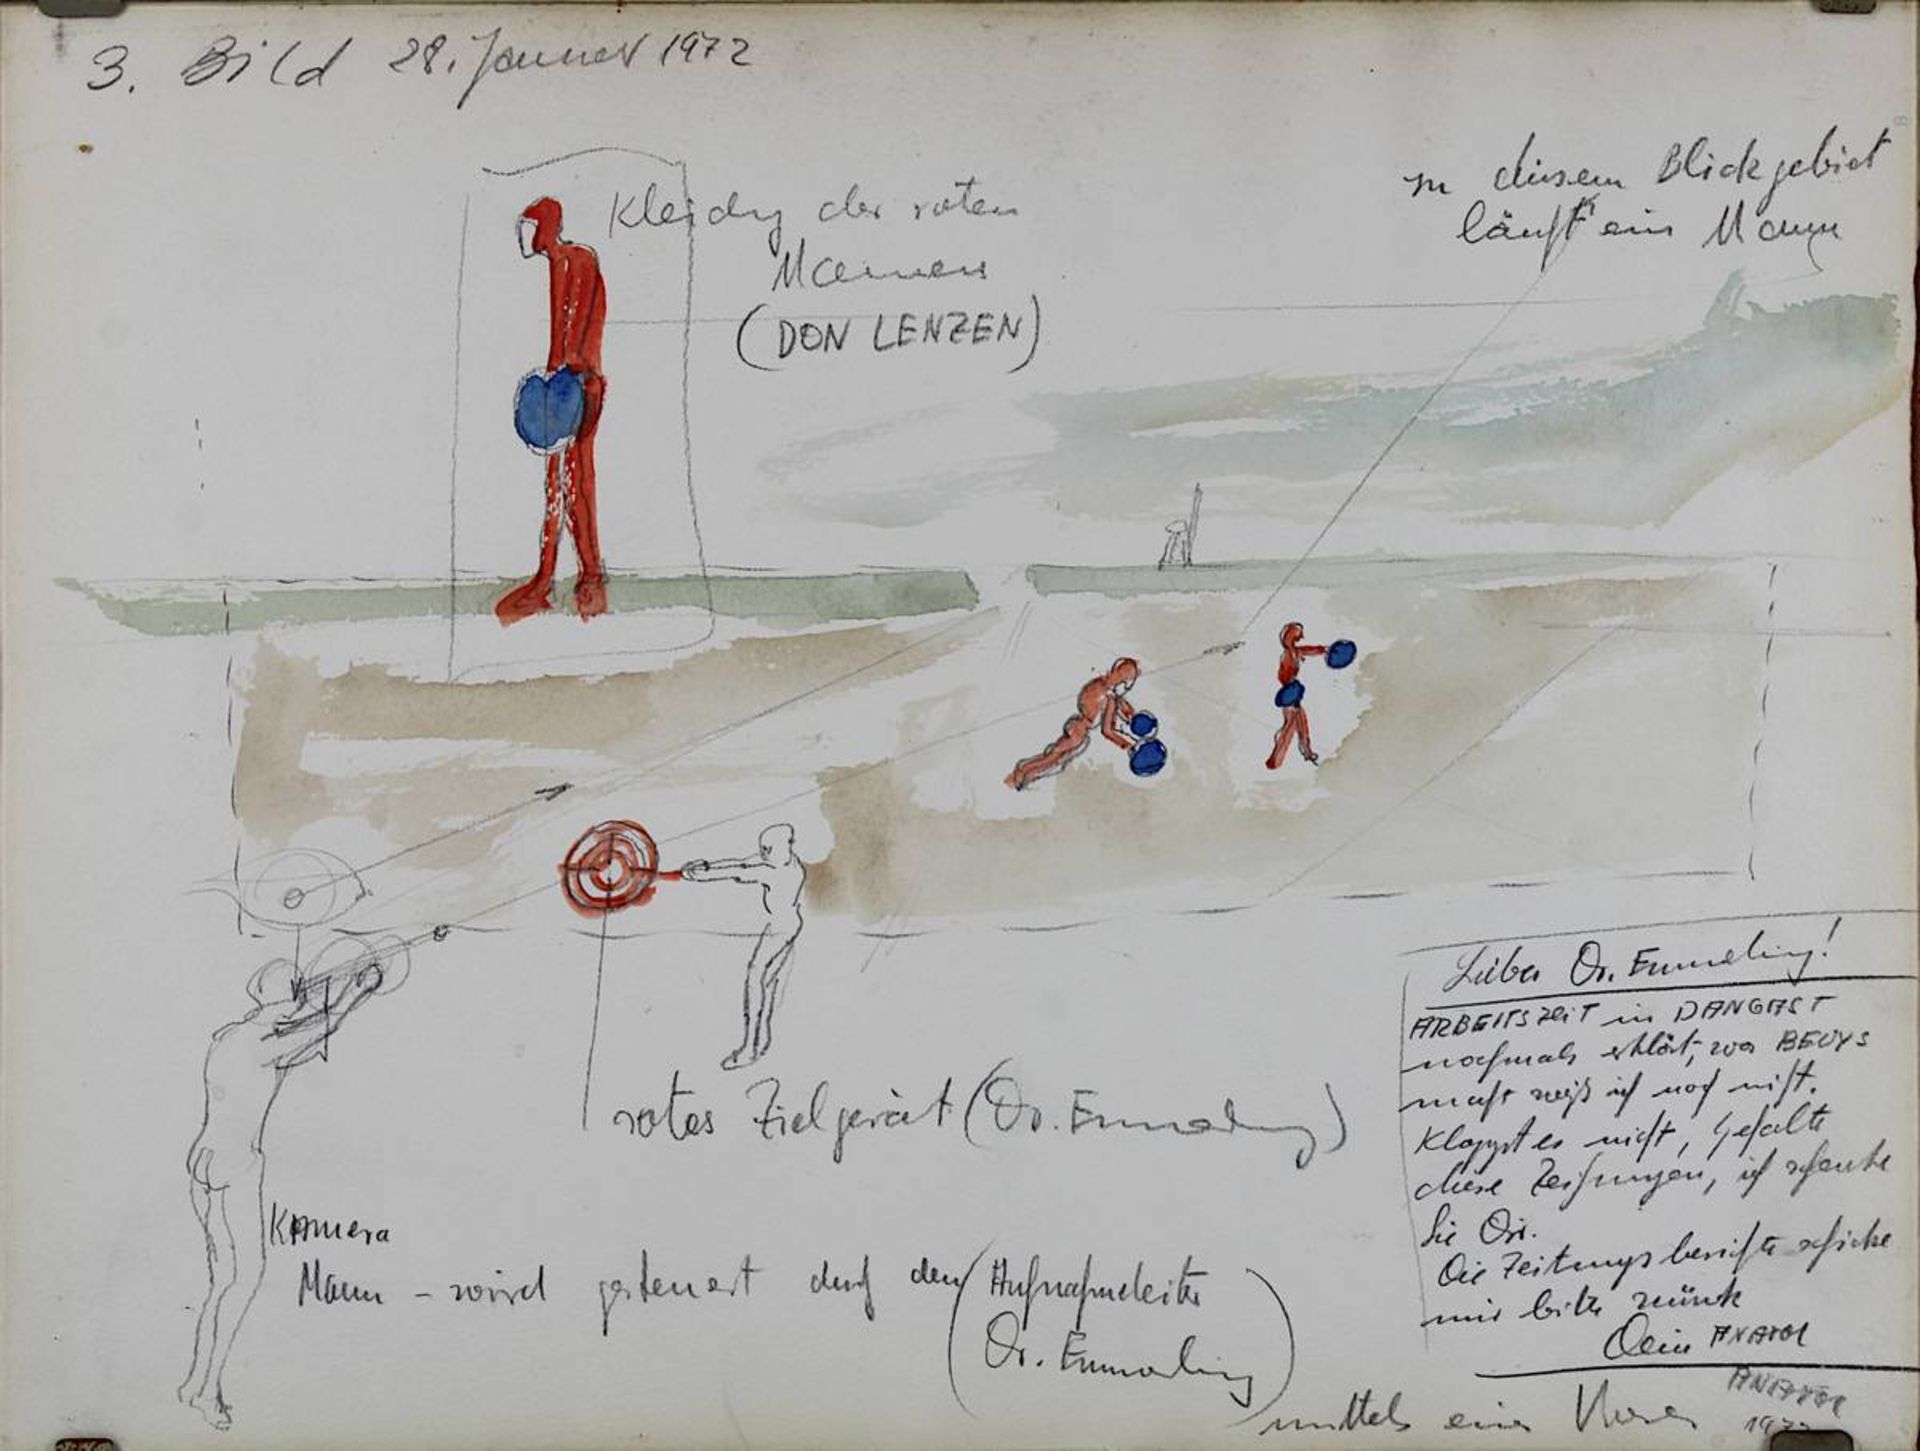 3. Bild 28. Januar 1972
in diesem Blickgebiet
läuft ein Mann
Kleidung der roten
Männer
(DON LENZEN)
Lieber Dr. Emmerling!
ARBEITSZEIT in DANGAST
nochmals erklärt, was BEUYS
macht weiß ich noch nicht.
Klappt es nicht, behalte
diese Zeichnungen, ich schenke
Sie Dir.
Die Zeitungsberichte schicke
mir bitte zurück
Dein ANATOL
rotes Zielgerät (Dr. Emmerling)
Kamera
Mann - wird gesteuert durch den (Aufnahmeleiter
Dr. Emmerling)
mittels eines
ANATOL
1972